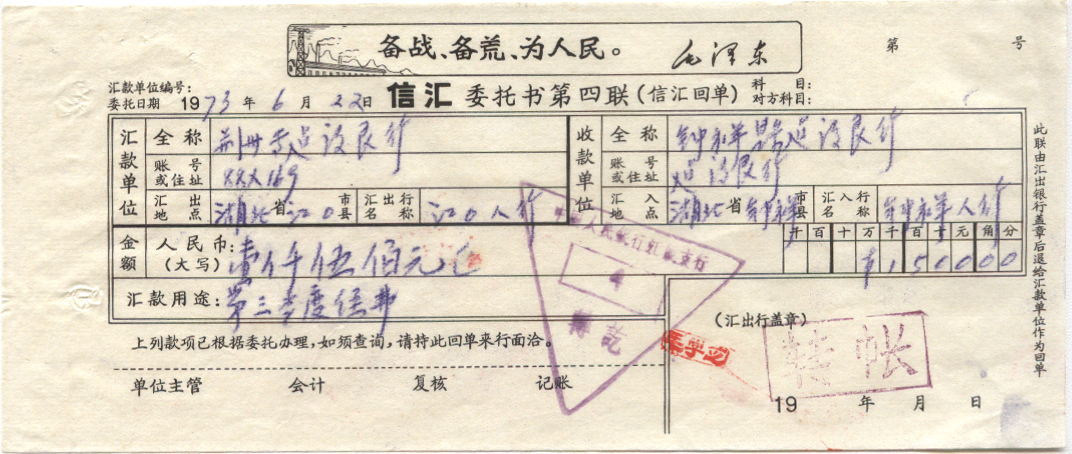 备战、备荒、为人民。 毛泽东
第 号
汇款单位编号:
委托日期 1973年6月22日 信汇 委托书第四联(信汇回单) 科目:
对方科目:
汇款单位 全称 收款单位 全称 钟祥县建设银行
账号或住址 XXX169 账号或住址 建设银行
汇出地点 湖北省江口市县 汇出行名称 江口人行 汇入地点 湖北省钟祥市县 汇入行名称 钟祥人行
金额 人民币:(大写) 壹仟伍佰元正 千百十万千百十元角分
¥150000
汇款用途: 第三季度经费
上列款项已根据委托办理,如须查询,请持此回单来行面洽。
(汇出行盖章)
单位主管 会计 复核 记账
19 年 月 日
此联由汇出银行盖章后退给汇款单位作为回单
4
转讫
转帐